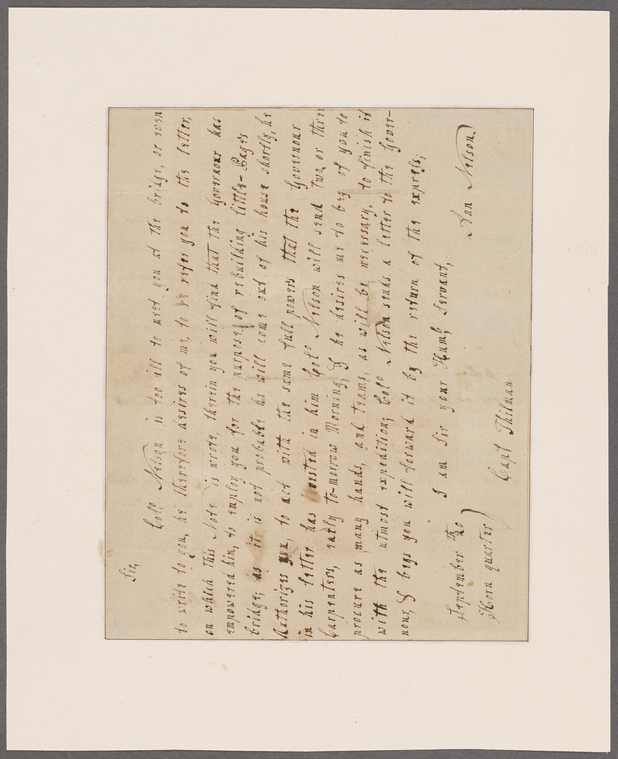 Sir,
Colo Nelson is too ill to meet you at the bridge, or even
to write to you, he therefore desires of me, to refer you to the letter,
on which this Note is wrote, therein you will find that the Governour has
empowered him, to employ you for the purpose, of rebuilding little-Pages
bridge, as it is not probable he will come out of his house shortly, he
Authorizes you, to act with the same full powers that the Governour
in his letter has vested in him Colo Nelson will send Two or three
Carpenters, early to-morrow Morning, & he desires me to beg of you to
procure as many hands, and teams, as will be necessary, to finish it
with the utmost expedition; Colo Nelson sends a letter to the Gover-
nour, & begs you will forward it by the return of the express,
I am Sir your Humb, Servant,
Ann Nelson.
September 20
Horn quarter
Capt Thilman